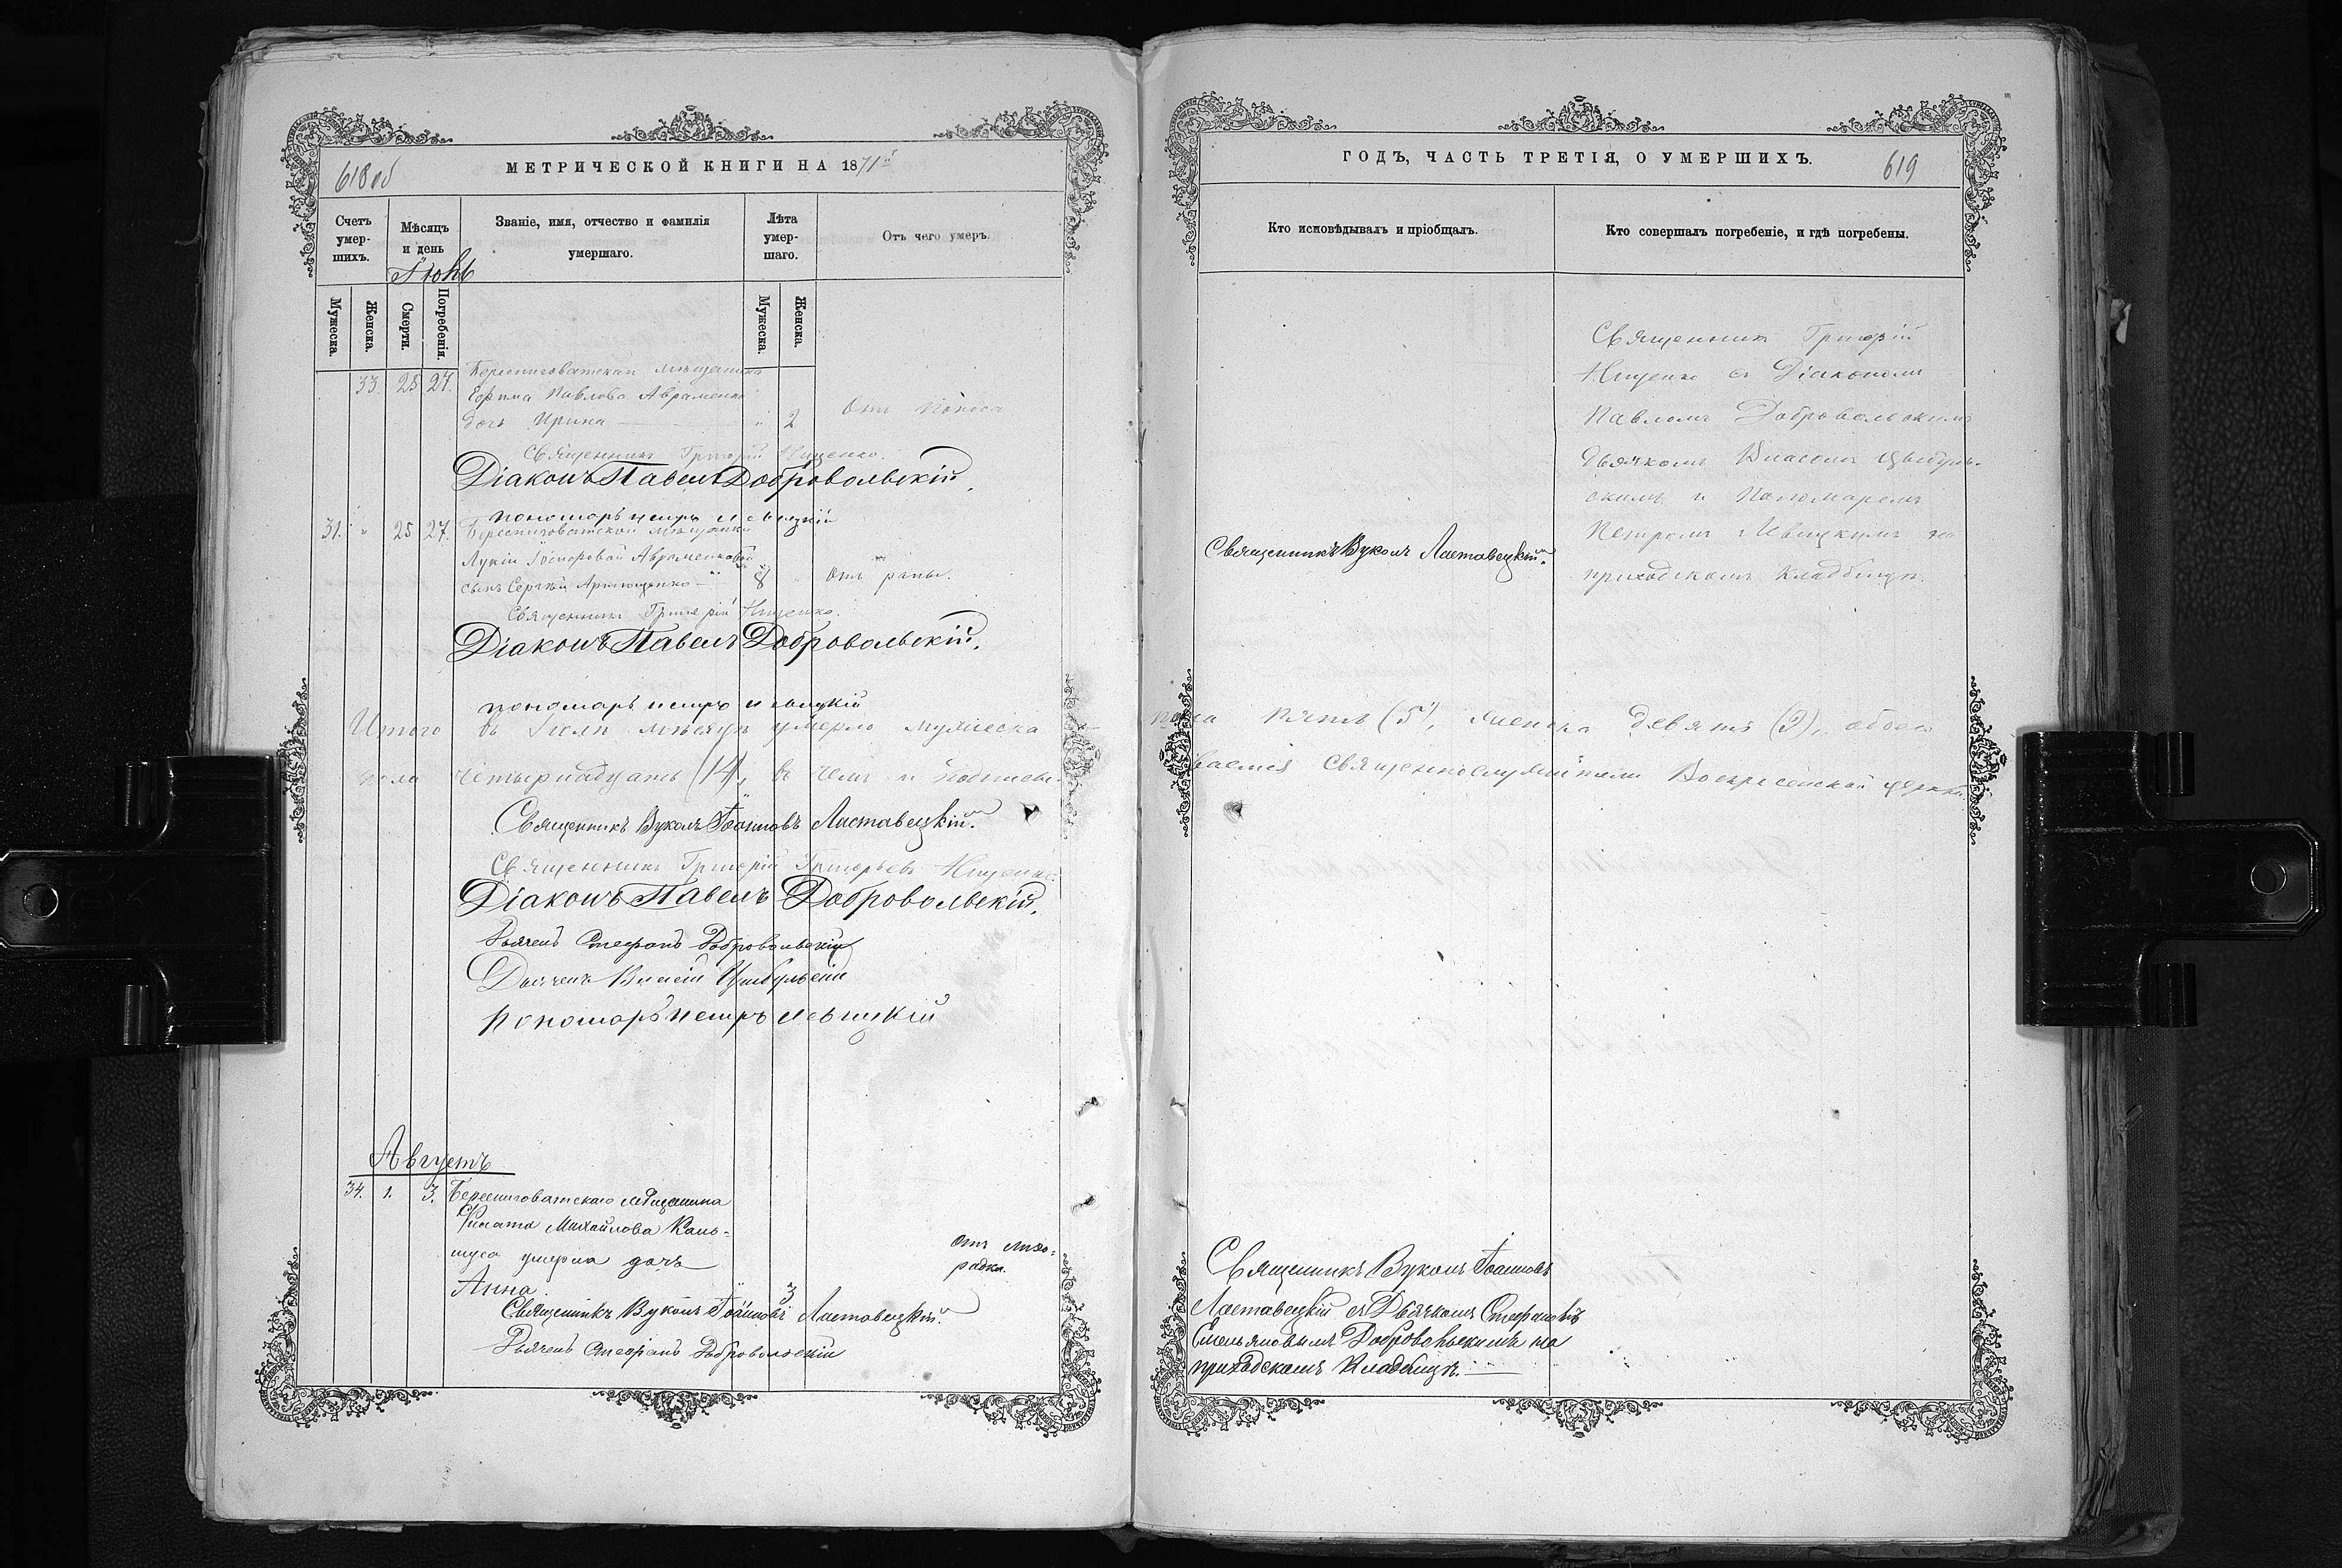 618 об
МЕТРИЧЕСКОЙ КНИГИ НА 1871й
Счетъ умер- шихъ.
Мѣсяцъ и день
Званіе, имя, отчество и фамилія умершаго.
Лѣта умер- шаго.
Отъ чего умеръ.
Мужеска.
Женска.
Смерти.
Погребенія.
Мужеска.
Женска.
33. 25 27. Береснеговатскаго мѣщанина
Павлова Авраменко
дочь Ирина — " 2 Отъ поноса
Священникъ Григорій Нищенко.
Діаконъ Павелъ Добровольскій.
пономарь петръ левицкій
31. " 25 27. Береснеговатской мѣщанки
Лукіи Авраменковой
сынъ Сергѣй — 8 " Отъ раны.
Священникъ Григорій Нищенко.
Діаконъ Павелъ Добровольскій.
пономарь петръ левицкій
Итого въ Іюлѣ мѣсяцѣ умерло мужеска
пола четырнадцать (14), въ чемъ и подписы-
Священникъ Вуколъ Іоанновъ Ластавецкій.
Священникъ Григорій Григорьевъ Нищенко.
Діаконъ Павелъ Добровольскій.
Дьячекъ Стефанъ Добровольскій
Дьячекъ Власій Цыбульскій
пономарь петръ левицкій
Августъ
34. 1. 3. Береснеговатскаго мѣщанина
Михайлова Кань-
умерла дочь
Отъ лихо-
радки.
Анна. " 3
Священникъ Вуколъ Іоанновъ Ластавецкій.
Дьячекъ Стефанъ Добровольскій
ГОДЪ, ЧАСТЬ ТРЕТІЯ, О УМЕРШИХЪ.
619
Кто исповѣдывалъ и пріобщалъ.
Кто совершалъ погребеніе, и гдѣ погребены.
Священникъ Григорій
Нищенко съ Діакономъ
Павломъ Добровольскимъ
дьячкомъ Власомъ Цыбуль-
скимъ и Пономаремъ
Петромъ Левицкимъ на
приходскомъ кладбищѣ.
Священникъ Вуколъ Ластавецкій.
пола пять (5), женска девять (9), обоего
ваемся Священнослужители Воскресенской церкви.
Священникъ Вуколъ Іоанновъ
Ластавецкій съ Дьячкомъ Стефаномъ
Емельяновымъ Добровольскимъ на
приходскомъ Кладбищѣ. —